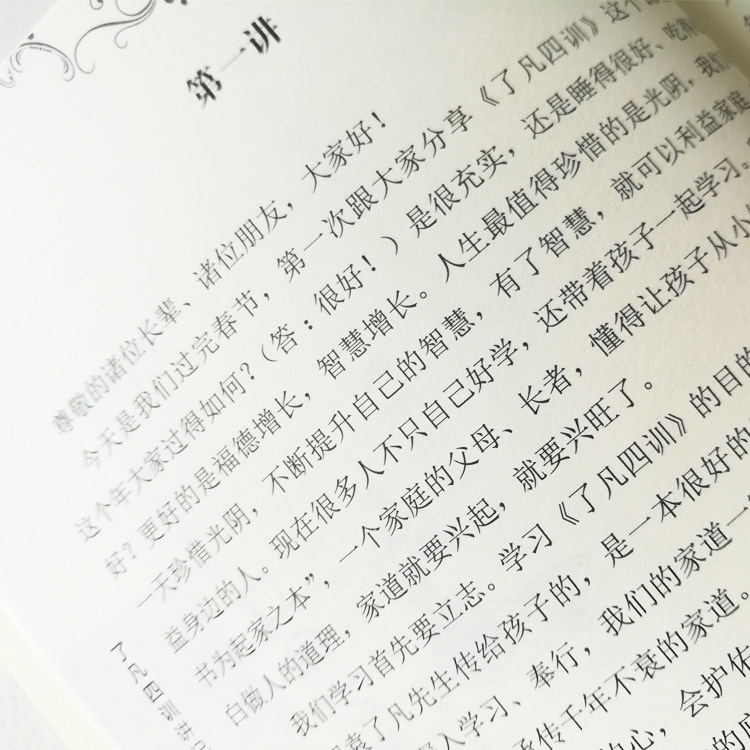 第一讲
尊敬的诸位长辈、诸位朋友，大家好！
今天是我们过完春节，第一次跟大家分享《了凡四训》这个
这个年大家过得如何？（答：很好！）是很充实，还是睡得很好、吃得
好？更好的是福德增长，智慧增长。人生最值得珍惜的是光阴，我们
一天珍惜光阴，不断提升自己的智慧，有了智慧，就可以利益家庭
益身边的人。现在很多人不只自己好学，还带着孩子一起学习。
书为起家之本”，一个家庭的父母、长者，懂得让孩子从小
白做人的道理，家道就要兴起，就要兴旺了。
我们学习首先要立志。学习《了凡四训》的目的
袁了凡先生传给孩子的，是一本很好的
入学习、奉行，我们的家道一
承传千年不衰的家道。
心，会护佑
的
了凡四训讲记